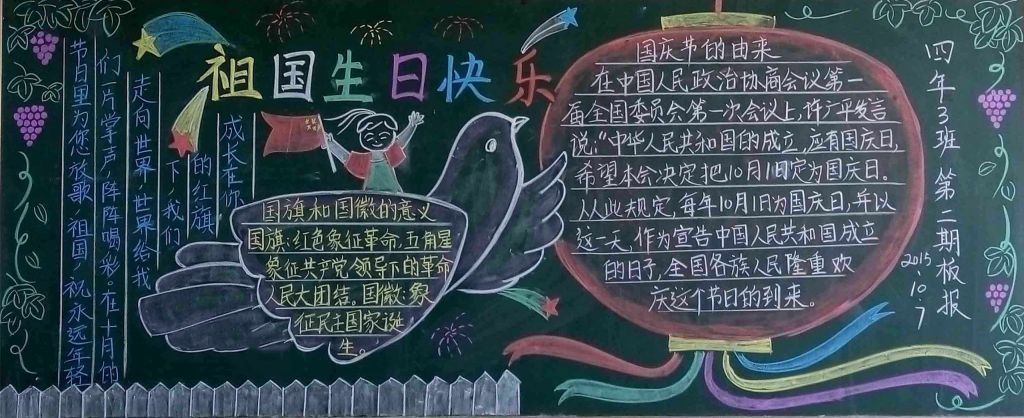 祖国生日快乐
成长在你
的红旗
下，我们
走向世界，世界给我
们一片掌声，阵阵喝彩。在十月的
节日里为您放歌，祖国，祝永远年轻
国旗和国徽的意义
国旗：红色象征革命，五角星
象征共产党领导下的革命
人民大团结。国徽：象
征民主国家诞
生。
国庆节的由来
在中国人民政治协商会议第一
届全国委员会第一次会议上，许广平发言
说：“中华人民共和国的成立，应有国庆日，
希望本会决定把10月1日定为国庆日。
从此规定，每年10月1日为国庆日，并以
这一天，作为宣告中国人民共和国成立
的日子，全国各族人民隆重欢
庆这个节日的到来。
四年3班，第二期板报
2015.10.7